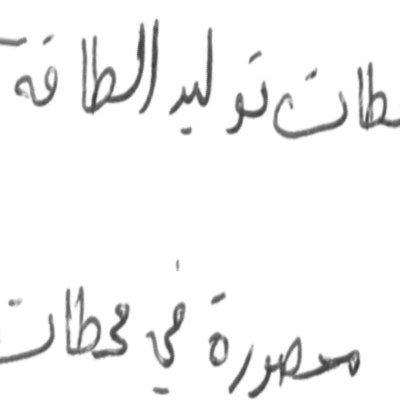 طات توليد الطاقة
محصورة في محطات